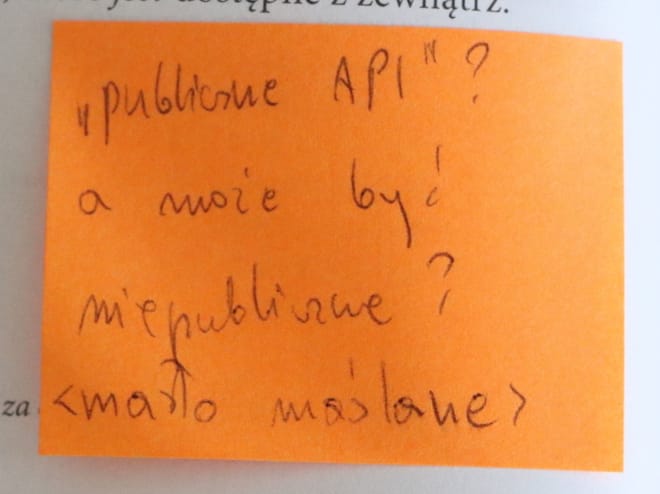 dostępne z zewnątrz.
„publiczne API” ?
a może być
niepubliczne ?
za
<masło maślane>